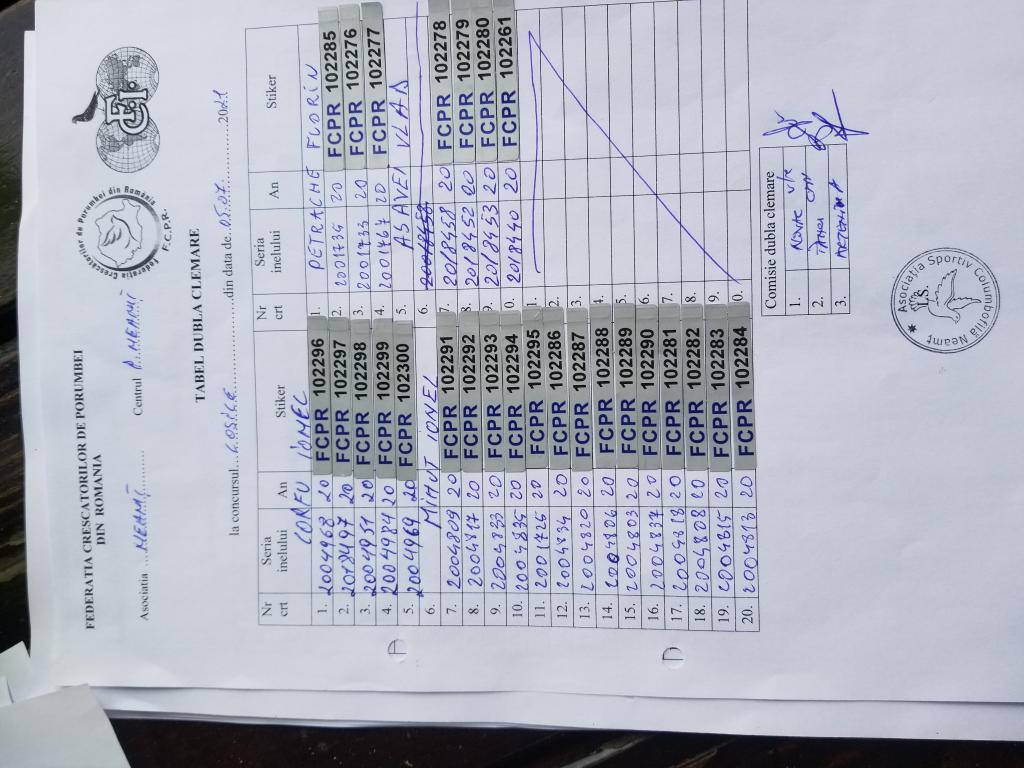 FEDERATIA CRESCATORILOR DE PORUMBEI
DIN ROMANIA
Asociatia ...NEAMŢ.......... Centrul P. NEAMŢ
Federatia Crescatorilor de Porumbei din România
F.C.P.R.
FCI
TABEL DUBLA CLEMARE
la concursul...KOSICE...din data de...05.07...2021
Nr crt Seria inelului An Stiker Nr crt Seria inelului An Stiker
CORFU IONEL PETRACHE FLORIN
1. 2004968 20 FCPR 102296 1. 2001734 20 FCPR 102285
2. 2018497 20 FCPR 102297 2. 2001733 20 FCPR 102276
3. 2004951 20 FCPR 102298 3. 2001767 20 FCPR 102277
4. 2004984 20 FCPR 102299 4. ASAVEI VLAD
5. 2004969 20 FCPR 102300 5.
6. MIHUT IONEL 6.
7. 2004809 20 FCPR 102291 7. 2018458 20 FCPR 102278
8. 2004817 20 FCPR 102292 8. 2018452 20 FCPR 102279
9. 2004833 20 FCPR 102293 9. 2018453 20 FCPR 102280
10. 2004835 20 FCPR 102294 0. 2018440 20 FCPR 102261
11. 2001725 20 FCPR 102295 1.
12. 2004834 20 FCPR 102286 2.
13. 2004820 20 FCPR 102287 3.
14. 2004806 20 FCPR 102288 4.
15. 2004803 20 FCPR 102289 5.
16. 2004837 20 FCPR 102290 6.
17. 2004818 20 FCPR 102281 7.
18. 2004808 20 FCPR 102282 8.
19. 2004815 20 FCPR 102283 9.
20. 2004813 20 FCPR 102284 0.
Comisie dubla clemare
1.
2.
3.
Asociatia Sportiv Columbofilă Neamt